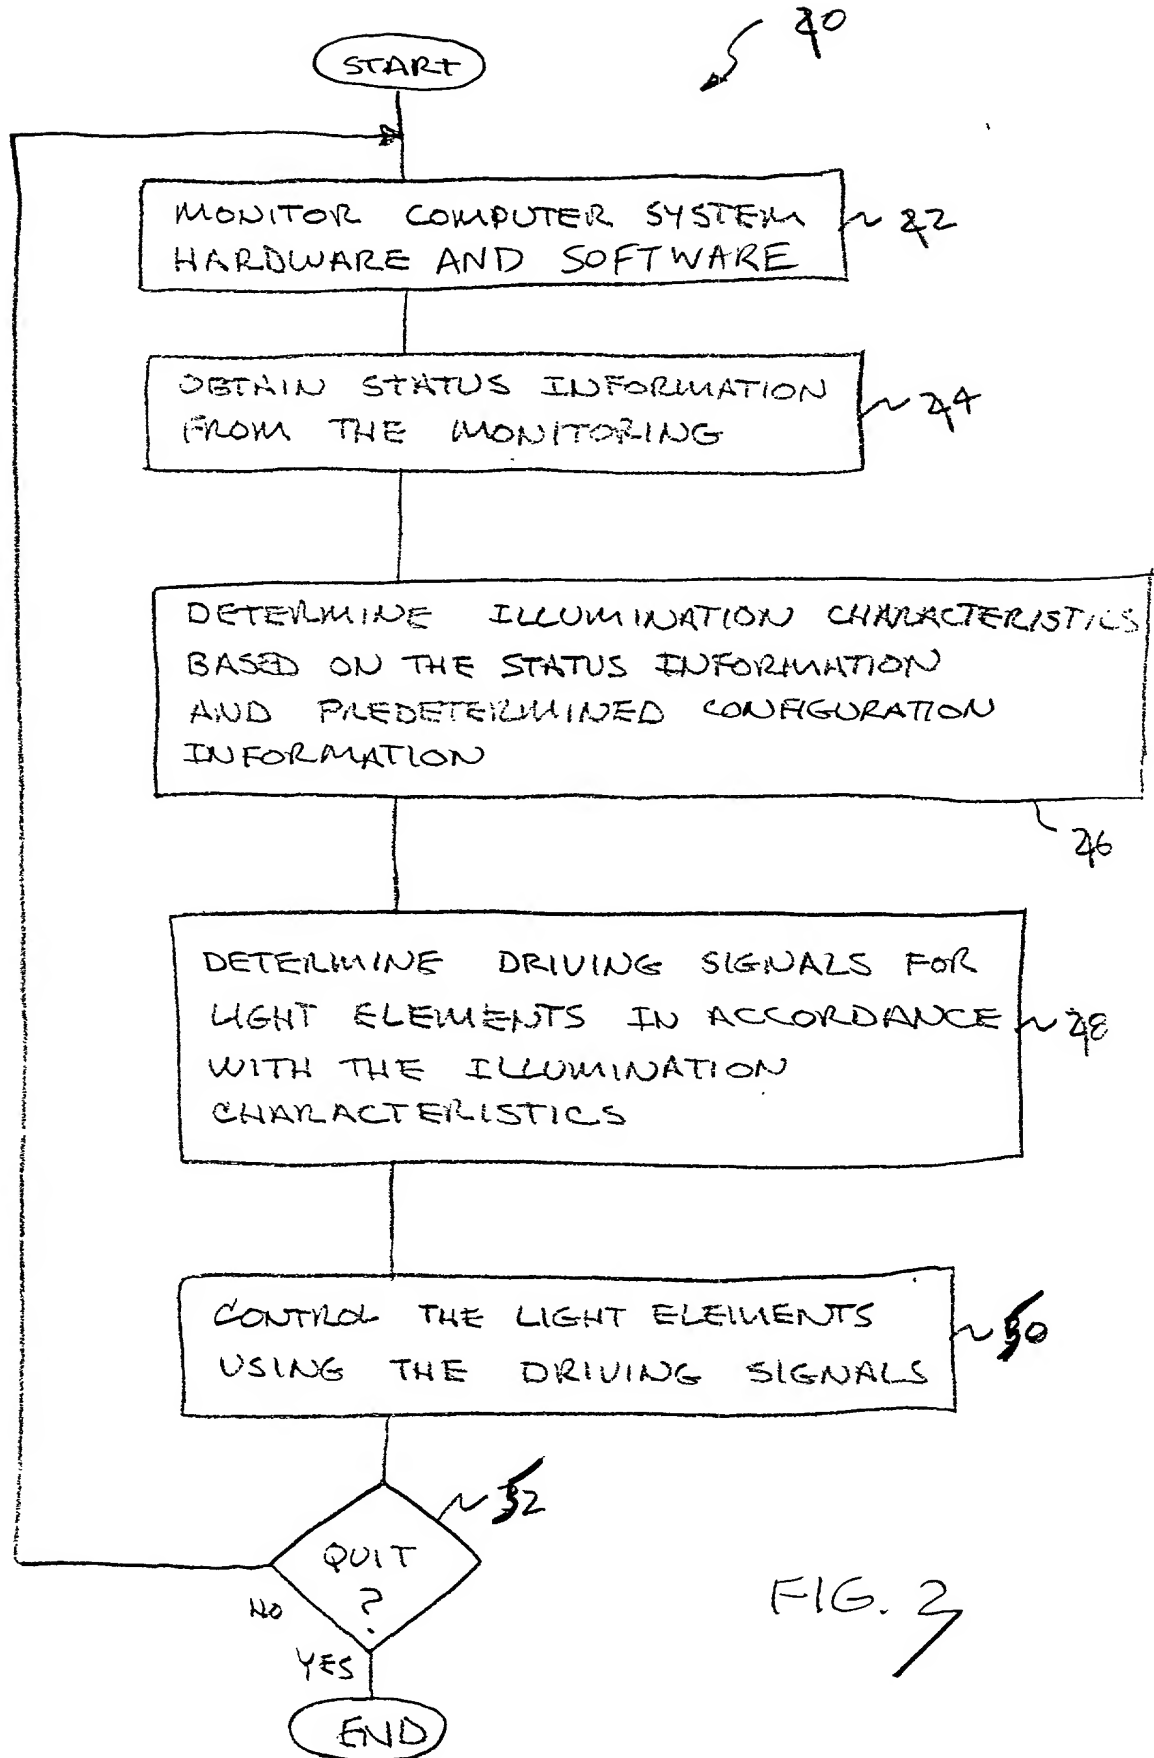 40
START
MONITOR COMPUTER SYSTEM
HARDWARE AND SOFTWARE
42
OBTAIN STATUS INFORMATION
FROM THE MONITORING
44
DETERMINE ILLUMINATION CHARACTERISTICS
BASED ON THE STATUS INFORMATION
AND PREDETERMINED CONFIGURATION
INFORMATION
46
DETERMINE DRIVING SIGNALS FOR
LIGHT ELEMENTS IN ACCORDANCE
WITH THE ILLUMINATION
CHARACTERISTICS
48
CONTROL THE LIGHT ELEMENTS
USING THE DRIVING SIGNALS
50
52
QUIT
?
NO
YES
END
FIG. 2